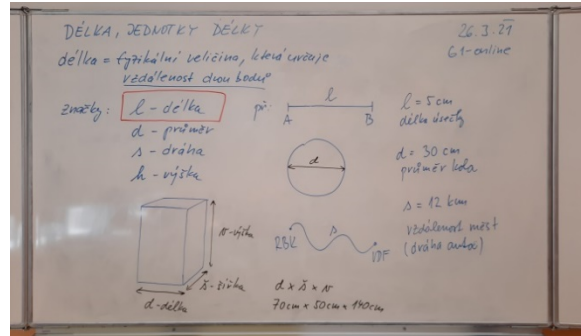 DÉLKA, JEDNOTKY DÉLKY
26.3.21
G1-online
délka = fyzikální veličina, která určuje
vzdálenost dvou bodů
značky:
l - délka
d - průměr
s - dráha
h - výška
př:
l
A B
l = 5 cm
délka úsečky
d
d = 30 cm
průměr kola
s
RBK
VDF
s = 12 km
vzdálenost měst
(dráha auta)
v-výška
š-šířka
d-délka
d x š x v
70cm x 50cm x 140cm